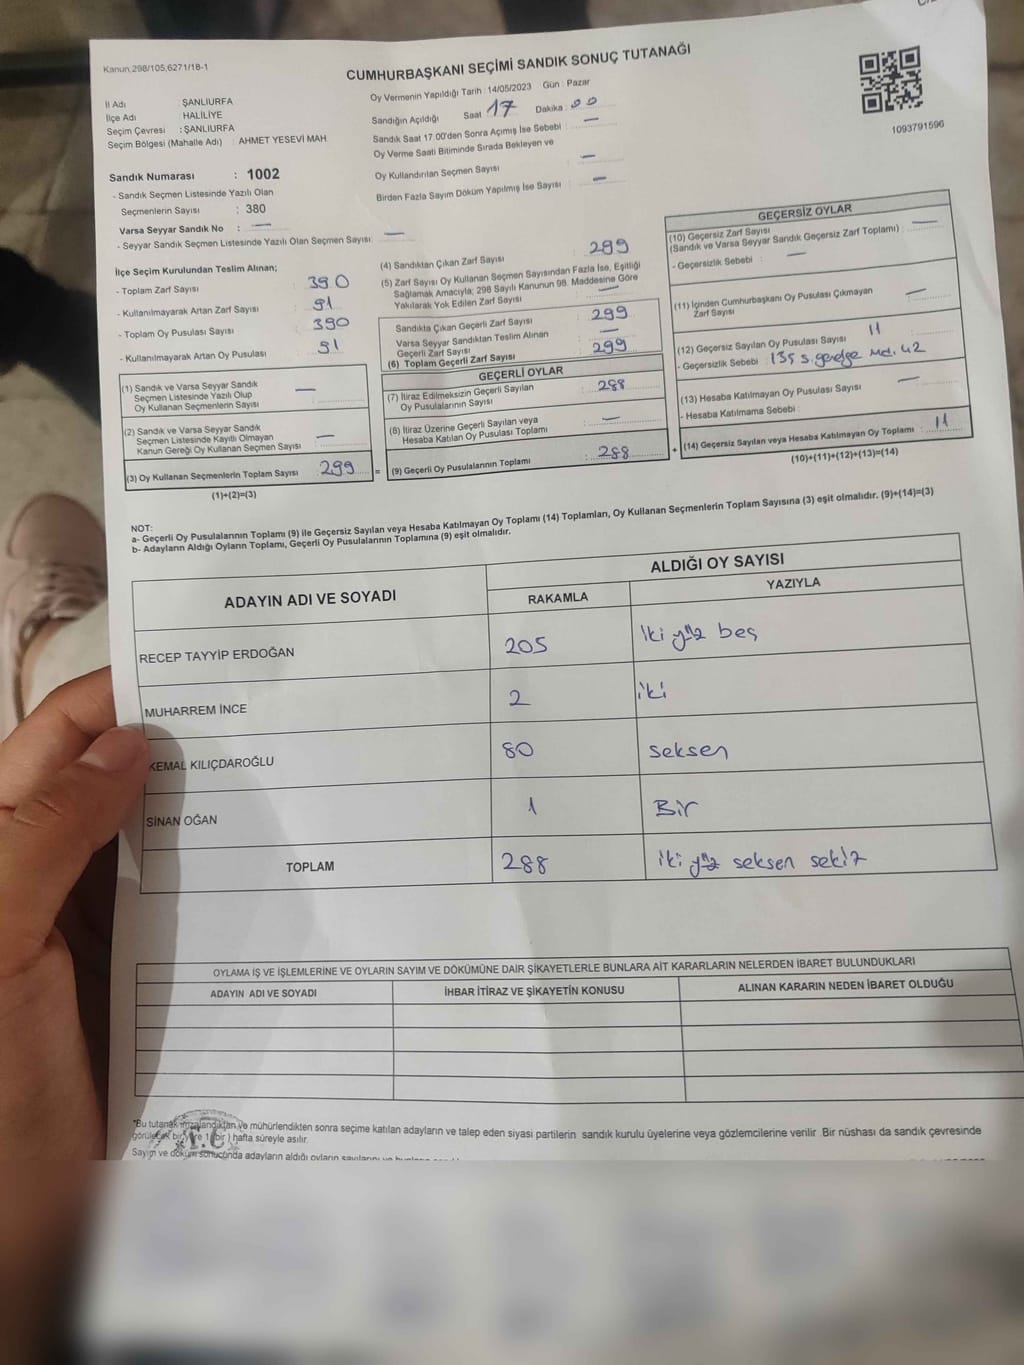 Kanun,298/105,6271/18-1
CUMHURBAŞKANI SEÇİMİ SANDIK SONUÇ TUTANAĞI
1093791596
İl Adı ŞANLIURFA
İlçe Adı HALİLİYE
Seçim Çevresi : ŞANLIURFA
Seçim Bölgesi (Mahalle Adı) : AHMET YESEVİ MAH
Oy Vermenin Yapıldığı Tarih : 14/05/2023 Gün : Pazar
Sandığın Açıldığı Saat : 17 Dakika : 00
Sandık Saat 17.00'den Sonra Açımış İse Sebebi : —
Oy Verme Saati Bitiminde Sırada Bekleyen ve
Oy Kullandırılan Seçmen Sayısı : —
Birden Fazla Sayım Döküm Yapılmış İse Sayısı : —
Sandık Numarası : 1002
- Sandık Seçmen Listesinde Yazılı Olan
Seçmenlerin Sayısı : 380
Varsa Seyyar Sandık No : —
- Seyyar Sandık Seçmen Listesinde Yazılı Olan Seçmen Sayısı: —
İlçe Seçim Kurulundan Teslim Alınan;
- Toplam Zarf Sayısı : 390
- Kullanılmayarak Artan Zarf Sayısı : 91
- Toplam Oy Pusulası Sayısı : 390
- Kullanılmayarak Artan Oy Pusulası : 91
(1) Sandık ve Varsa Seyyar Sandık
Seçmen Listesinde Yazılı Olup
Oy Kullanan Seçmenlerin Sayısı : —
(2) Sandık ve Varsa Seyyar Sandık
Seçmen Listesinde Kayıtlı Olmayan
Kanun Gereği Oy Kullanan Seçmen Sayısı : —
(3) Oy Kullanan Seçmenlerin Toplam Sayısı : 299 =
(1)+(2)=(3)
(4) Sandıktan Çıkan Zarf Sayısı : 299
(5) Zarf Sayısı Oy Kullanan Seçmen Sayısından Fazla İse, Eşitliği
Sağlamak Amacıyla; 298 Sayılı Kanunun 98. Maddesine Göre
Yakılarak Yok Edilen Zarf Sayısı : —
Sandıkta Çıkan Geçerli Zarf Sayısı : 299
Varsa Seyyar Sandıktan Teslim Alınan
Geçerli Zarf Sayısı : —
(6) Toplam Geçerli Zarf Sayısı : 299
GEÇERLİ OYLAR
(7) İtiraz Edilmeksizin Geçerli Sayılan
Oy Pusulalarının Sayısı : 288
(8) İtiraz Üzerine Geçerli Sayılan veya
Hesaba Katılan Oy Pusulası Toplamı : —
(9) Geçerli Oy Pusulalarının Toplamı : 288 +
GEÇERSİZ OYLAR
(10) Geçersiz Zarf Sayısı
(Sandık ve Varsa Seyyar Sandık Geçersiz Zarf Toplamı) : —
- Geçersizlik Sebebi : —
(11) İçinden Cumhurbaşkanı Oy Pusulası Çıkmayan
Zarf Sayısı : —
(12) Geçersiz Sayılan Oy Pusulası Sayısı : 11
- Geçersizlik Sebebi : 135 s. genelge Md. 42
(13) Hesaba Katılmayan Oy Pusulası Sayısı : —
- Hesaba Katılmama Sebebi :
(14) Geçersiz Sayılan veya Hesaba Katılmayan Oy Toplamı : 11
(10)+(11)+(12)+(13)=(14)
NOT:
a- Geçerli Oy Pusulalarının Toplamı (9) ile Geçersiz Sayılan veya Hesaba Katılmayan Oy Toplamı (14) Toplamları, Oy Kullanan Seçmenlerin Toplam Sayısına (3) eşit olmalıdır. (9)+(14)=(3)
b- Adayların Aldığı Oyların Toplamı, Geçerli Oy Pusulalarının Toplamına (9) eşit olmalıdır.
ADAYIN ADI VE SOYADI ALDIĞI OY SAYISI
RAKAMLA YAZIYLA
RECEP TAYYİP ERDOĞAN 205 İki yüz beş
MUHARREM İNCE 2 iki
KEMAL KILIÇDAROĞLU 80 seksen
SİNAN OĞAN 1 Bir
TOPLAM 288 iki yüz seksen sekiz
OYLAMA İŞ VE İŞLEMLERİNE VE OYLARIN SAYIM VE DÖKÜMÜNE DAİR ŞİKAYETLERLE BUNLARA AİT KARARLARIN NELERDEN İBARET BULUNDUKLARI
ADAYIN ADI VE SOYADI İHBAR İTİRAZ VE ŞİKAYETİN KONUSU ALINAN KARARIN NEDEN İBARET OLDUĞU
"Bu tutanak imzalandıktan ve mühürlendikten sonra seçime katılan adayların ve talep eden siyasi partilerin sandık kurulu üyelerine veya gözlemcilerine verilir. Bir nüshası da sandık çevresinde
görülecek bir yere 1 (bir) hafta süreyle asılır.
T.C
Sayım ve döküm sonucunda adayların aldığı oyların sayılarını